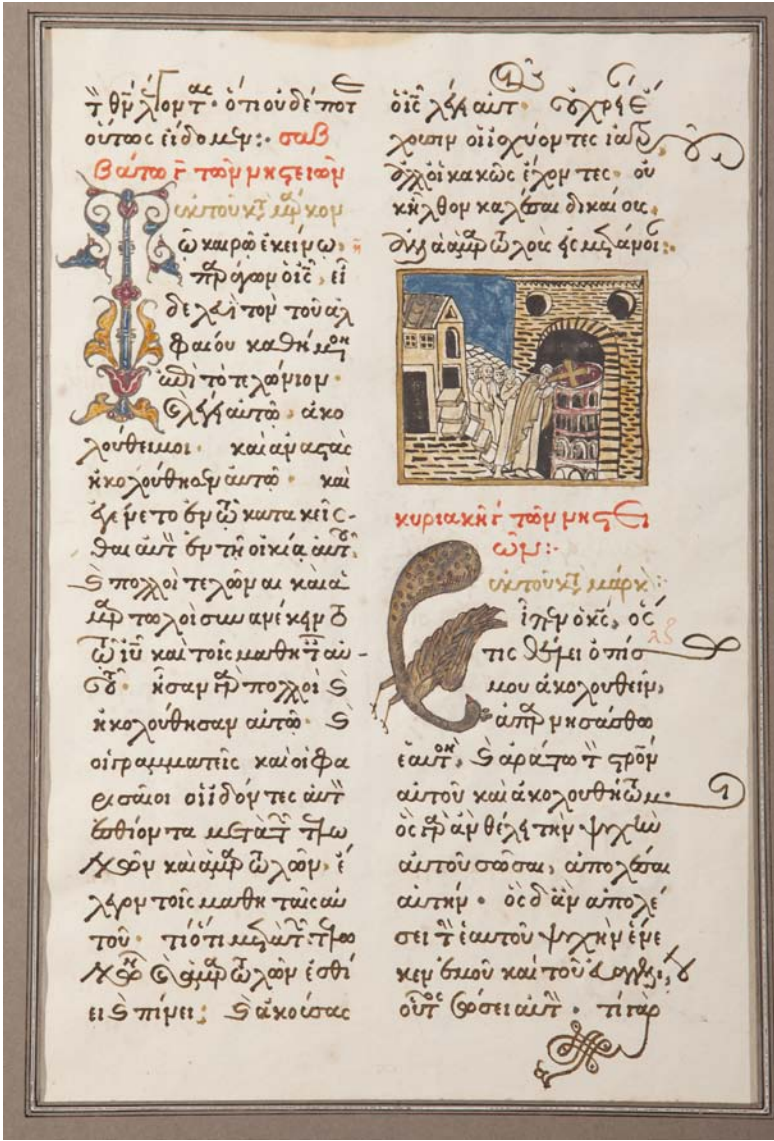 τὸν θν̅ λέγοντας· ὅτι οὐδέποτε
οὕτως εἴδομεν:· σαβ
βάτω γ̅ τῶν νηστειῶν
ἐκ τοῦ κατὰ μάρκον
Τῶ καιρῶ ἐκείνω·
παράγων ὁ ις̅, εἶ
δε λευὶ τὸν τοῦ ἀλ
φαίου καθήμενον
ἐπὶ τὸ τελώνιον·
καὶ λέγει αὐτῶ· ἀκο
λούθει μοι· καὶ ἀναστὰς
ἠκολούθησεν αὐτῶ· καὶ
ἐγένετο ἐν τῶ κατακεῖσ-
θαι αὐτὸν ἐν τῆ οἰκία αὐτοῦ,
καὶ πολλοὶ τελῶναι καὶ ἁ
μαρτωλοὶ συνανέκειντο
τῶ ιυ̅ καὶ τοῖς μαθηταῖς αὐ-
τοῦ· ἦσαν γὰρ πολλοὶ καὶ
ἠκολούθησαν αὐτῶ· καὶ
οἱ γραμματεῖς καὶ οἱ φα
ρισαῖοι ἰδόντες αὐτὸν
ἐσθίοντα μετὰ τῶν τελω
νῶν καὶ ἁμαρτωλῶν· ἔ
λεγον τοῖς μαθηταῖς αὐ
τοῦ· τί ὅτι μετὰ τῶν τελω
νῶν καὶ ἁμαρτωλῶν ἐσθί
ει καὶ πίνει; καὶ ἀκούσας
ὁ ις̅ λέγει αὐτοῖς· οὐ χρείαν ἔ
χουσιν οἱ ἰσχύοντες ἰατροῦ,
ἀλλ' οἱ κακῶς ἔχοντες· οὐ
κ ἦλθον καλέσαι δικαίους,
ἀλλὰ ἁμαρτωλοὺς εἰς μετάνοιαν:·
κυριακῆ γ̅ τῶν νηστει
ῶν:·
ἐκ τοῦ κατὰ μάρκον:
Εἶπεν ὁ κς̅, ὅς
τις θέλει ὀπίσω
μου ἀκολουθεῖν,
ἀπαρνησάσθω
ἑαυτὸν, καὶ ἀράτω τὸν στρὸν
αὐτοῦ καὶ ἀκολουθείτω μοι·
ὃς γὰρ ἂν θέλη τὴν ψυχὴν
αὐτοῦ σῶσαι, ἀπολέσει
αὐτήν· ὃς δ' ἂν ἀπολέ
σει τὴν ἑαυτοῦ ψυχὴν ἕνε
κεν ἐμοῦ καὶ τοῦ εὐαγγελίου,
οὗτος σώσει αὐτήν· τί γὰρ